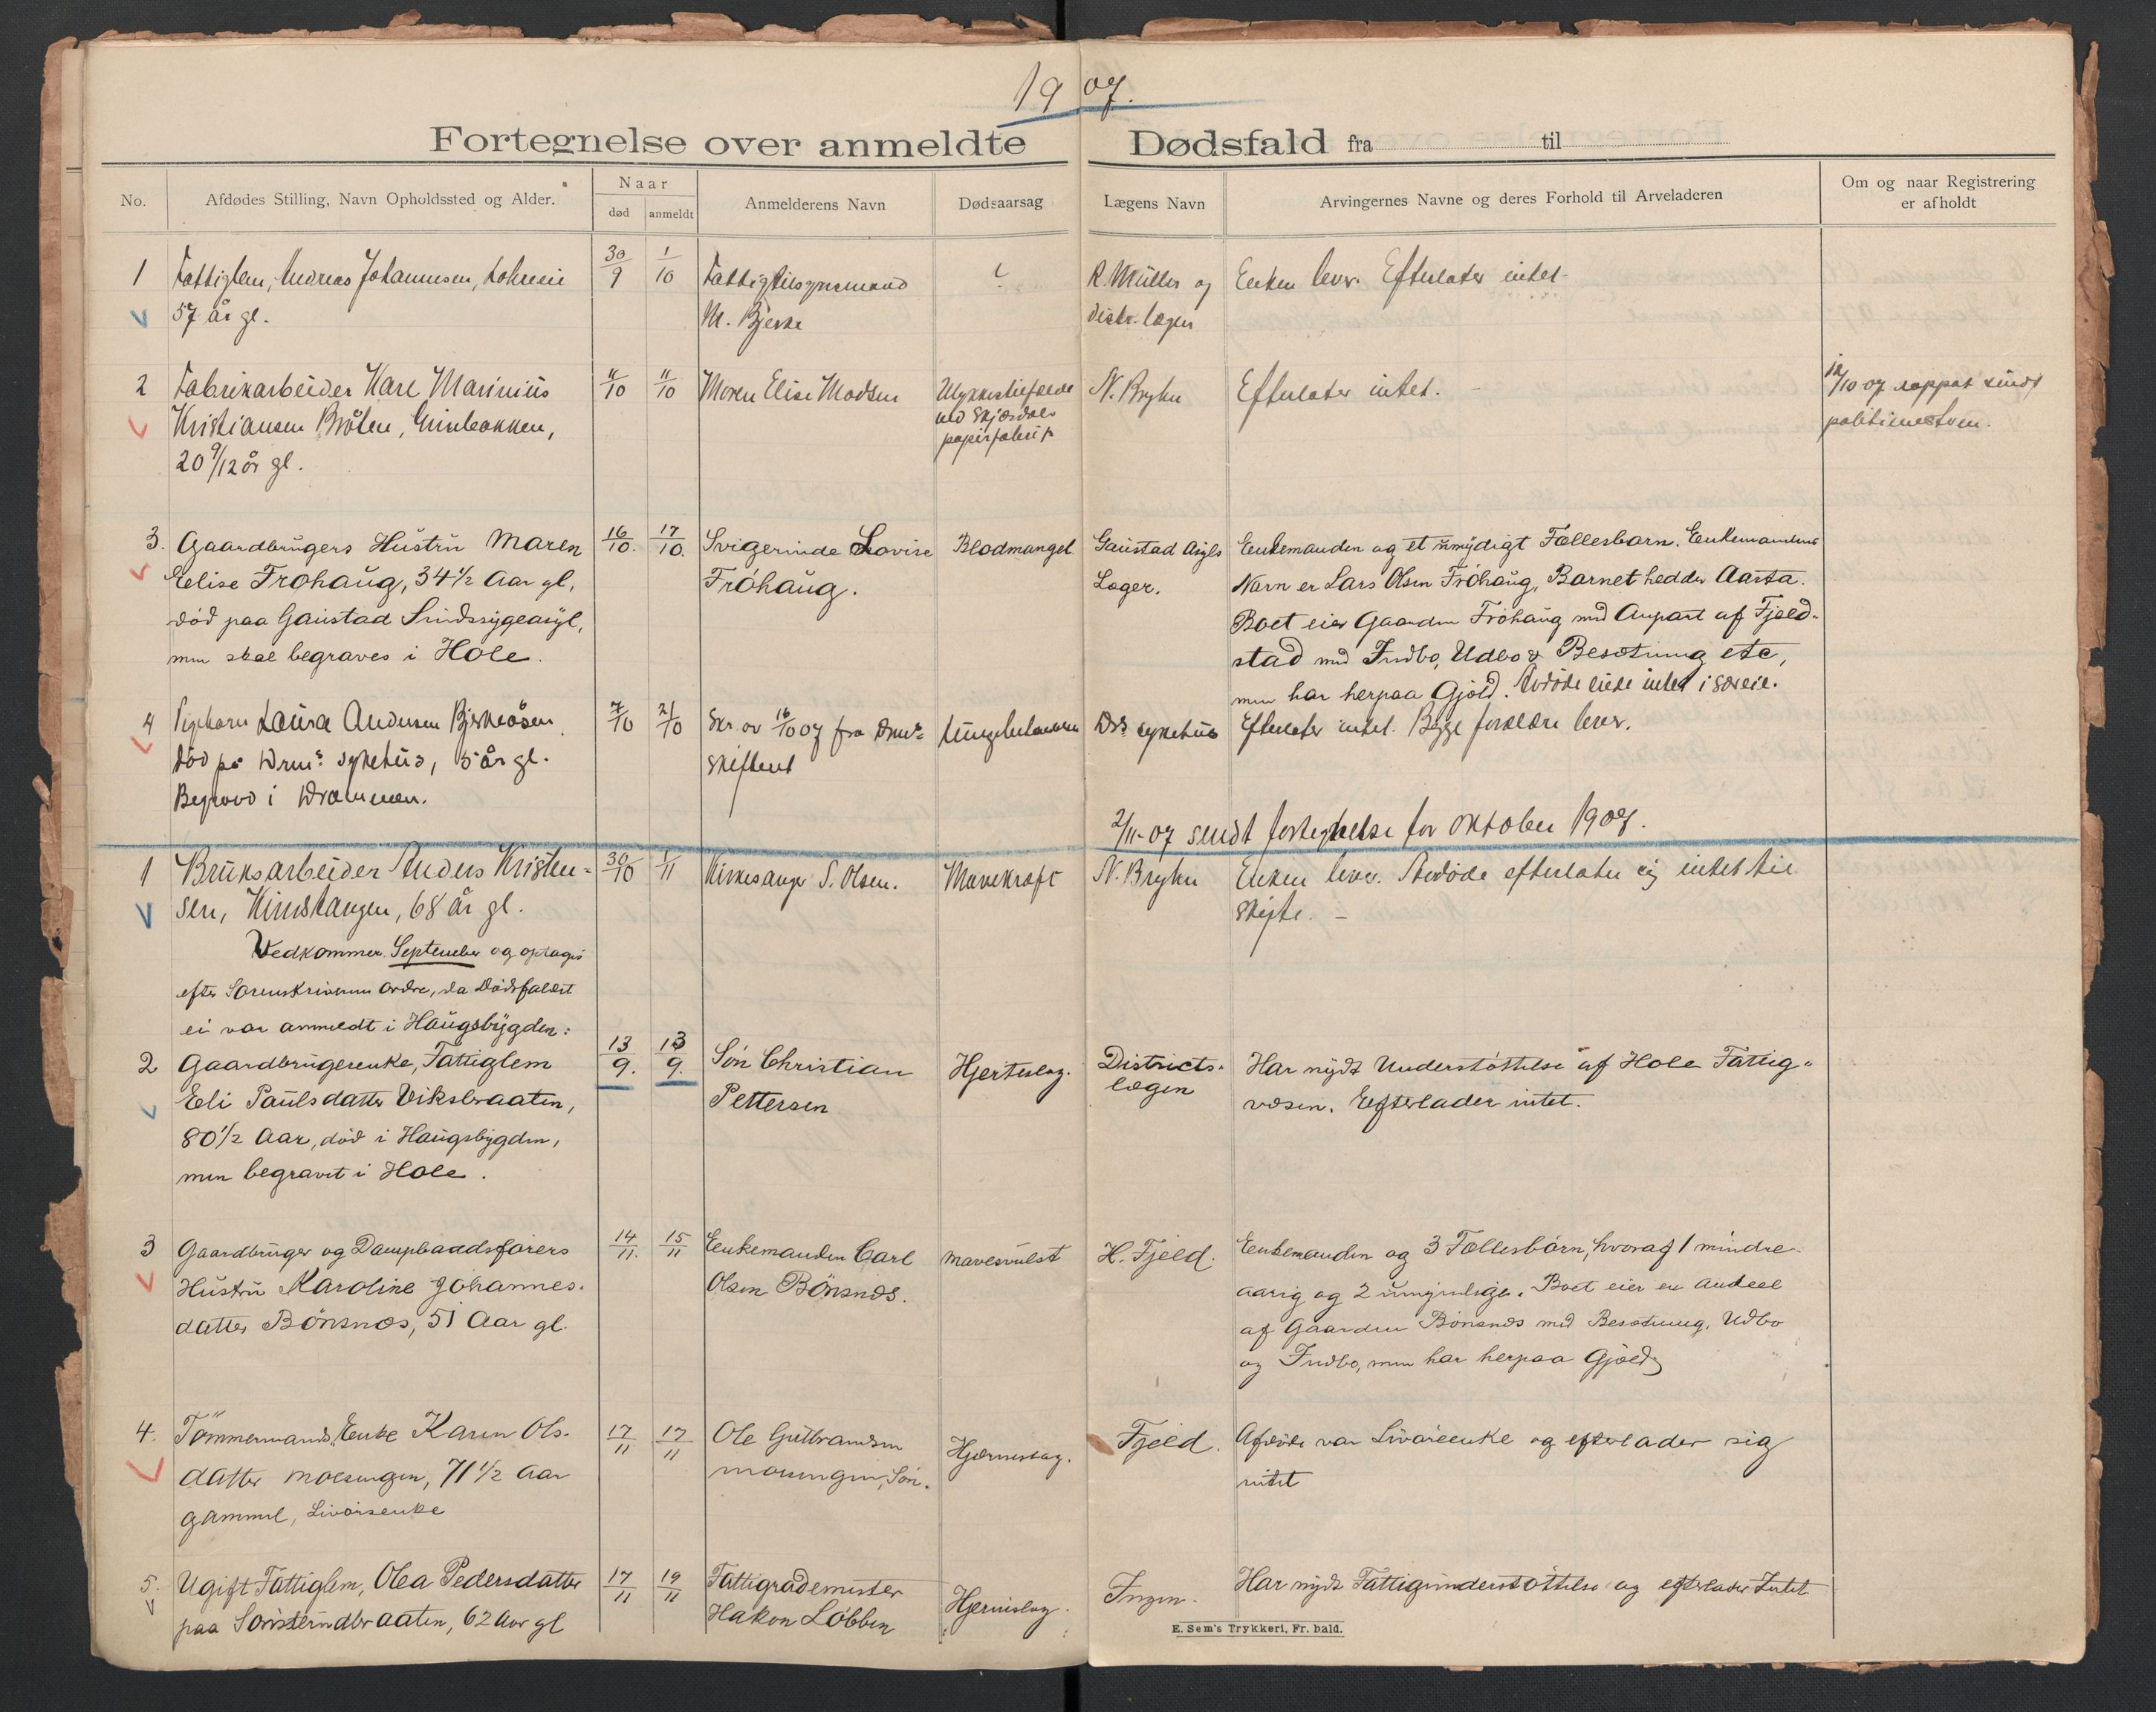 1907.
Fortegnelse over anmeldte Dødsfald fra til
No.
Afdødes Stilling, Navn Opholdssted og Alder.
Naar
død
anmeldt
Anmelderens Navn
Dødsaarsag
Lægens Navn
Arvingernes Navne og deres Forhold til Arveladeren
Om og naar Registrering
er afholdt
1 Fattiglem, Andreas Johannesen,
57 år gl.
30/9 1/10
Fattigtilsynsmand
M. Bjerke
?
R. Müller og
distr. lægen
Enken lever. Efterlater intet
2 Fabrikarbeider Karl Marinius
Kristiansen Bråten,
20 9/12 år gl.
11/10 11/10
Moren Elise Madsen
Ulykkestilfælde
ved Skjærdalens
papirfabrik
N. Bryhn
Efterlater intet. -
12/10 07 rapport sendt
politimesteren.
3. Gaardbrugers Hustru Maren
Elise Frøhaug, 34 1/2 Aar gl,
død paa Gaustad Sindssygeasyl,
men skal begraves i Hole.
16/10. 17/10.
Svigerinde Lovise
Frøhaug.
Blodmangel
Gaustad Asyls
Læger.
Enkemanden og et umyndigt Fællesbarn. Enkemandens
Navn er Lars Olsen Frøhaug, Barnet hedder Aasta.
Boet eier Gaarden Frøhaug med Anpart af Fjeld-
stad med Indbo, Udbo & Besætning etc,
men har herpaa Gjæld. Avdøde eiede intet i særeie.
4 Pigebarn Laura Andersen Bjerkeåsen
død på Drms sykehus, 5 år gl.
Begravd i Drammen.
7/10 21/10
Skr. av 16/10 07 fra Drms
skifteret
Lungebetændelse
Drs sykehus
Efterlater intet. Begge forældre lever.
2/11-07 sendt fortegnelse for oktober 1907.
1 Bruksarbeider Anders Kristen-
sen, 68 år gl.
30/10 1/11
Kirkesanger S. Olsen.
Mavekræft
N. Bryhn
Enken lever. Avdøde efterlater sig intet til
skifte. -
Vedkommer September og optages
efter Sorenskriveren Ordre, da Dødsfaldet
ei var anmeldt i Haugsbygden:
2 Gaardbrugerenke, Fattiglem
Eli Paulsdatter Viksbraaten,
80 1/2 Aar, død i Haugsbygden,
men begravet i Hole.
13/9. 13/9.
Søn Christian
Pettersen
Hjerteslag.
Districts-
lægen
Har nydt Understøttelse af Hole Fattig-
væsen. Efterlader intet.
3 Gaardbruger og Dampbaadsførers
Hustru Karoline Johannes-
datter Bønsnæs, 51 Aar gl.
14/11. 15/11
Enkemanden Carl
Olsen Bønsnæs.
mavesvulst
H. Fjeld.
Enkemanden og 3 Fællesbørn, hvoraf 1 mindre-
aarig og 2 umyndige. Boet eier en Andeel
af Gaarden Bønsnæs med Besætning, Udbo
og Indbo, men har herpaa Gjæld
4. Tømmermands Enke Karen Ols-
datter Moesengen, 71 1/2 Aar
gammel,
17/11 17/11
Ole Gulbrandsen
Moesengen, Søn.
Hjerneslag.
Fjeld.
Afdøde var og efterlader sig
intet
5. Ugift Fattiglem, Olea Pedersdatter
paa Sønsterudbraaten, 62 Aar gl
17/11 19/11
Fattigrodemester
Hakon Løbben
Hjerneslag.
Ingen.
Har nydt Fattigunderstøttelse og efterlader Intet
E. Sem's Trykkeri, Fr. hald.